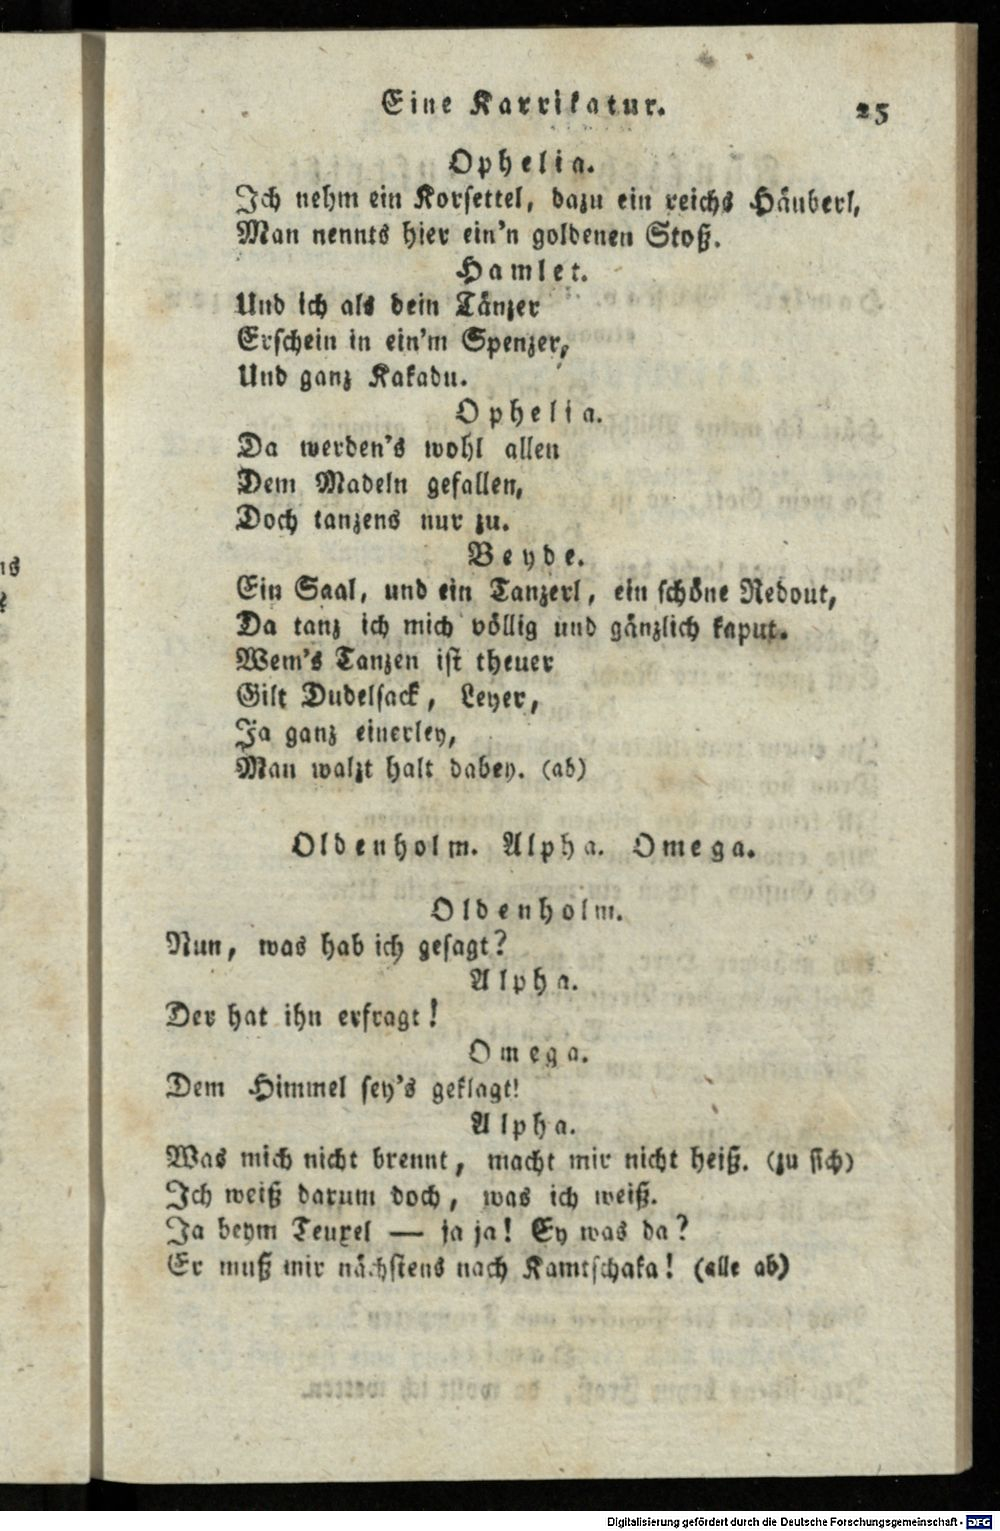 Eine Karrikatur. 25
Ophelia.
Ich nehm ein Korsettel, dazu ein reichs Häuberl,
Man nennts hier ein'n goldenen Stoß.
Hamlet.
Und ich als dein Tänzer
Erschein in ein'm Spenzer,
Und ganz Kakadu.
Ophelia.
Da werden's wohl allen
Dem Madeln gefallen,
Doch tanzens nur zu.
Beyde.
Ein Saal, und ein Tanzerl, ein schöne Redout,
Da tanz ich mich völlig und gänzlich kaput.
Wem's Tanzen ist theuer
Gilt Dudelsack, Leyer,
Ja ganz einerley,
Man walzt halt dabey. (ab)
Oldenholm. Alpha. Omega.
Oldenholm.
Nun, was hab ich gesagt?
Alpha.
Der hat ihn erfragt!
Omega.
Dem Himmel sey's geklagt!
Alpha.
Was mich nicht brennt, macht mir nicht heiß. (zu sich)
Ich weiß darum doch, was ich weiß.
Ja beym Teuxel — ja ja! Ey was da?
Er muß mir nächstens nach Kamtschaka! (alle ab)
Digitalisierung gefördert durch die Deutsche Forschungsgemeinschaft - DFG